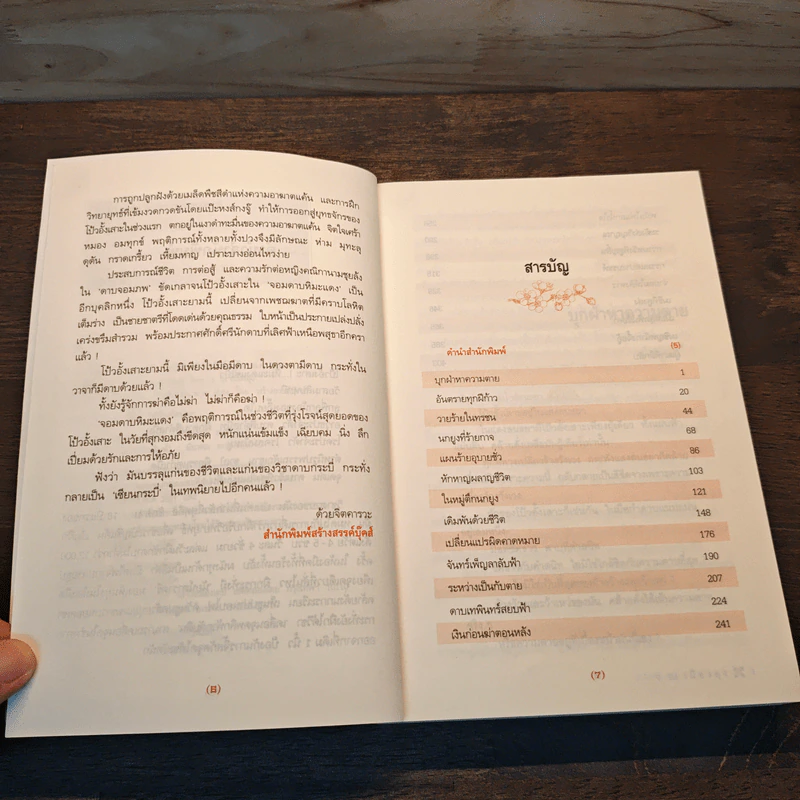 การถูกปลูกฝังด้วยเมล็ดพืชสีดำแห่งความอาฆาตแค้น และการฝึก
วิทยายุทธ์ที่เข้มงวดกวดขันโดยแป๊ะหงส์กงจู้ ทำให้การออกสู่ยุทธจักรของ
โป้วอั้งเสาะในช่วงแรก ตกอยู่ในเงาดำทะมึนของความอาฆาตแค้น จิตใจเศร้า
หมอง อมทุกข์ พฤติการณ์ทั้งหลายทั้งปวงจึงมีลักษณะ ห่าม มุทะลุ
ดุดัน กราดเกรี้ยว เหี้ยมหาญ เปราะบางอ่อนไหวง่าย
ประสบการณ์ชีวิต การต่อสู้ และความรักต่อหญิงคณิกานามชุยลั้ง
ใน 'ดาบจอมภพ' ขัดเกลาจนโป้วอั้งเสาะใน 'จอมดาบหิมะแดง' เป็น
อีกบุคลิกหนึ่ง โป้วอั้งเสาะยามนี้ เปลี่ยนจากเพชฌฆาตที่มีคราบโลหิต
เต็มร่าง เป็นชายชาตรีที่โดดเด่นด้วยคุณธรรม ใบหน้าเป็นประกายเปล่งปลั่ง
เคร่งขรึมสำรวม พร้อมประกาศศักดิ์ศรีนักดาบที่เลิศฟ้าเหนือพสุธาอีกครา
แล้ว !
โป้วอั้งเสาะยามนี้ มิเพียงในมือมีดาบ ในดวงตามีดาบ กระทั่งใน
วาจาก็มีดาบด้วยแล้ว !
ทั้งยังรู้จักการฆ่าคือไม่ฆ่า ไม่ฆ่าก็คือฆ่า !
'จอมดาบหิมะแดง' คือพฤติการณ์ในช่วงชีวิตที่รุ่งโรจน์สุดยอดของ
โป้วอั้งเสาะ ในวัยที่สุกงอมถึงขีดสุด หนักแน่นเข้มแข็ง เฉียบคม นิ่ง ลึก
เปี่ยมด้วยรักและการให้อภัย
ฟังว่า มันบรรลุแก่นของชีวิตและแก่นของวิชาดาบกระบี่ กระทั่ง
กลายเป็น 'เซียนกระบี่' ในเทพนิยายไปอีกคนแล้ว !
ด้วยจิตคารวะ
สำนักพิมพ์สร้างสรรค์บุ๊คส์
(6)
สารบัญ
คำนำสำนักพิมพ์ (5)
บุกฝ่าหาความตาย 1
อันตรายทุกฝีก้าว 20
วายร้ายในทรชน 44
นกยูงที่ร้ายกาจ 68
แผนร้ายอุบายชั่ว 86
หักหาญผลาญชีวิต 103
ในหมู่ตึกนกยูง 121
เดิมพันด้วยชีวิต 148
เปลี่ยนแปรผิดคาดหมาย 176
จันทร์เพ็ญลาลับฟ้า 190
ระหว่างเป็นกับตาย 207
ดาบเทพินทร์สยบฟ้า 224
เงินก่อนฆ่าตอนหลัง 241
(7)